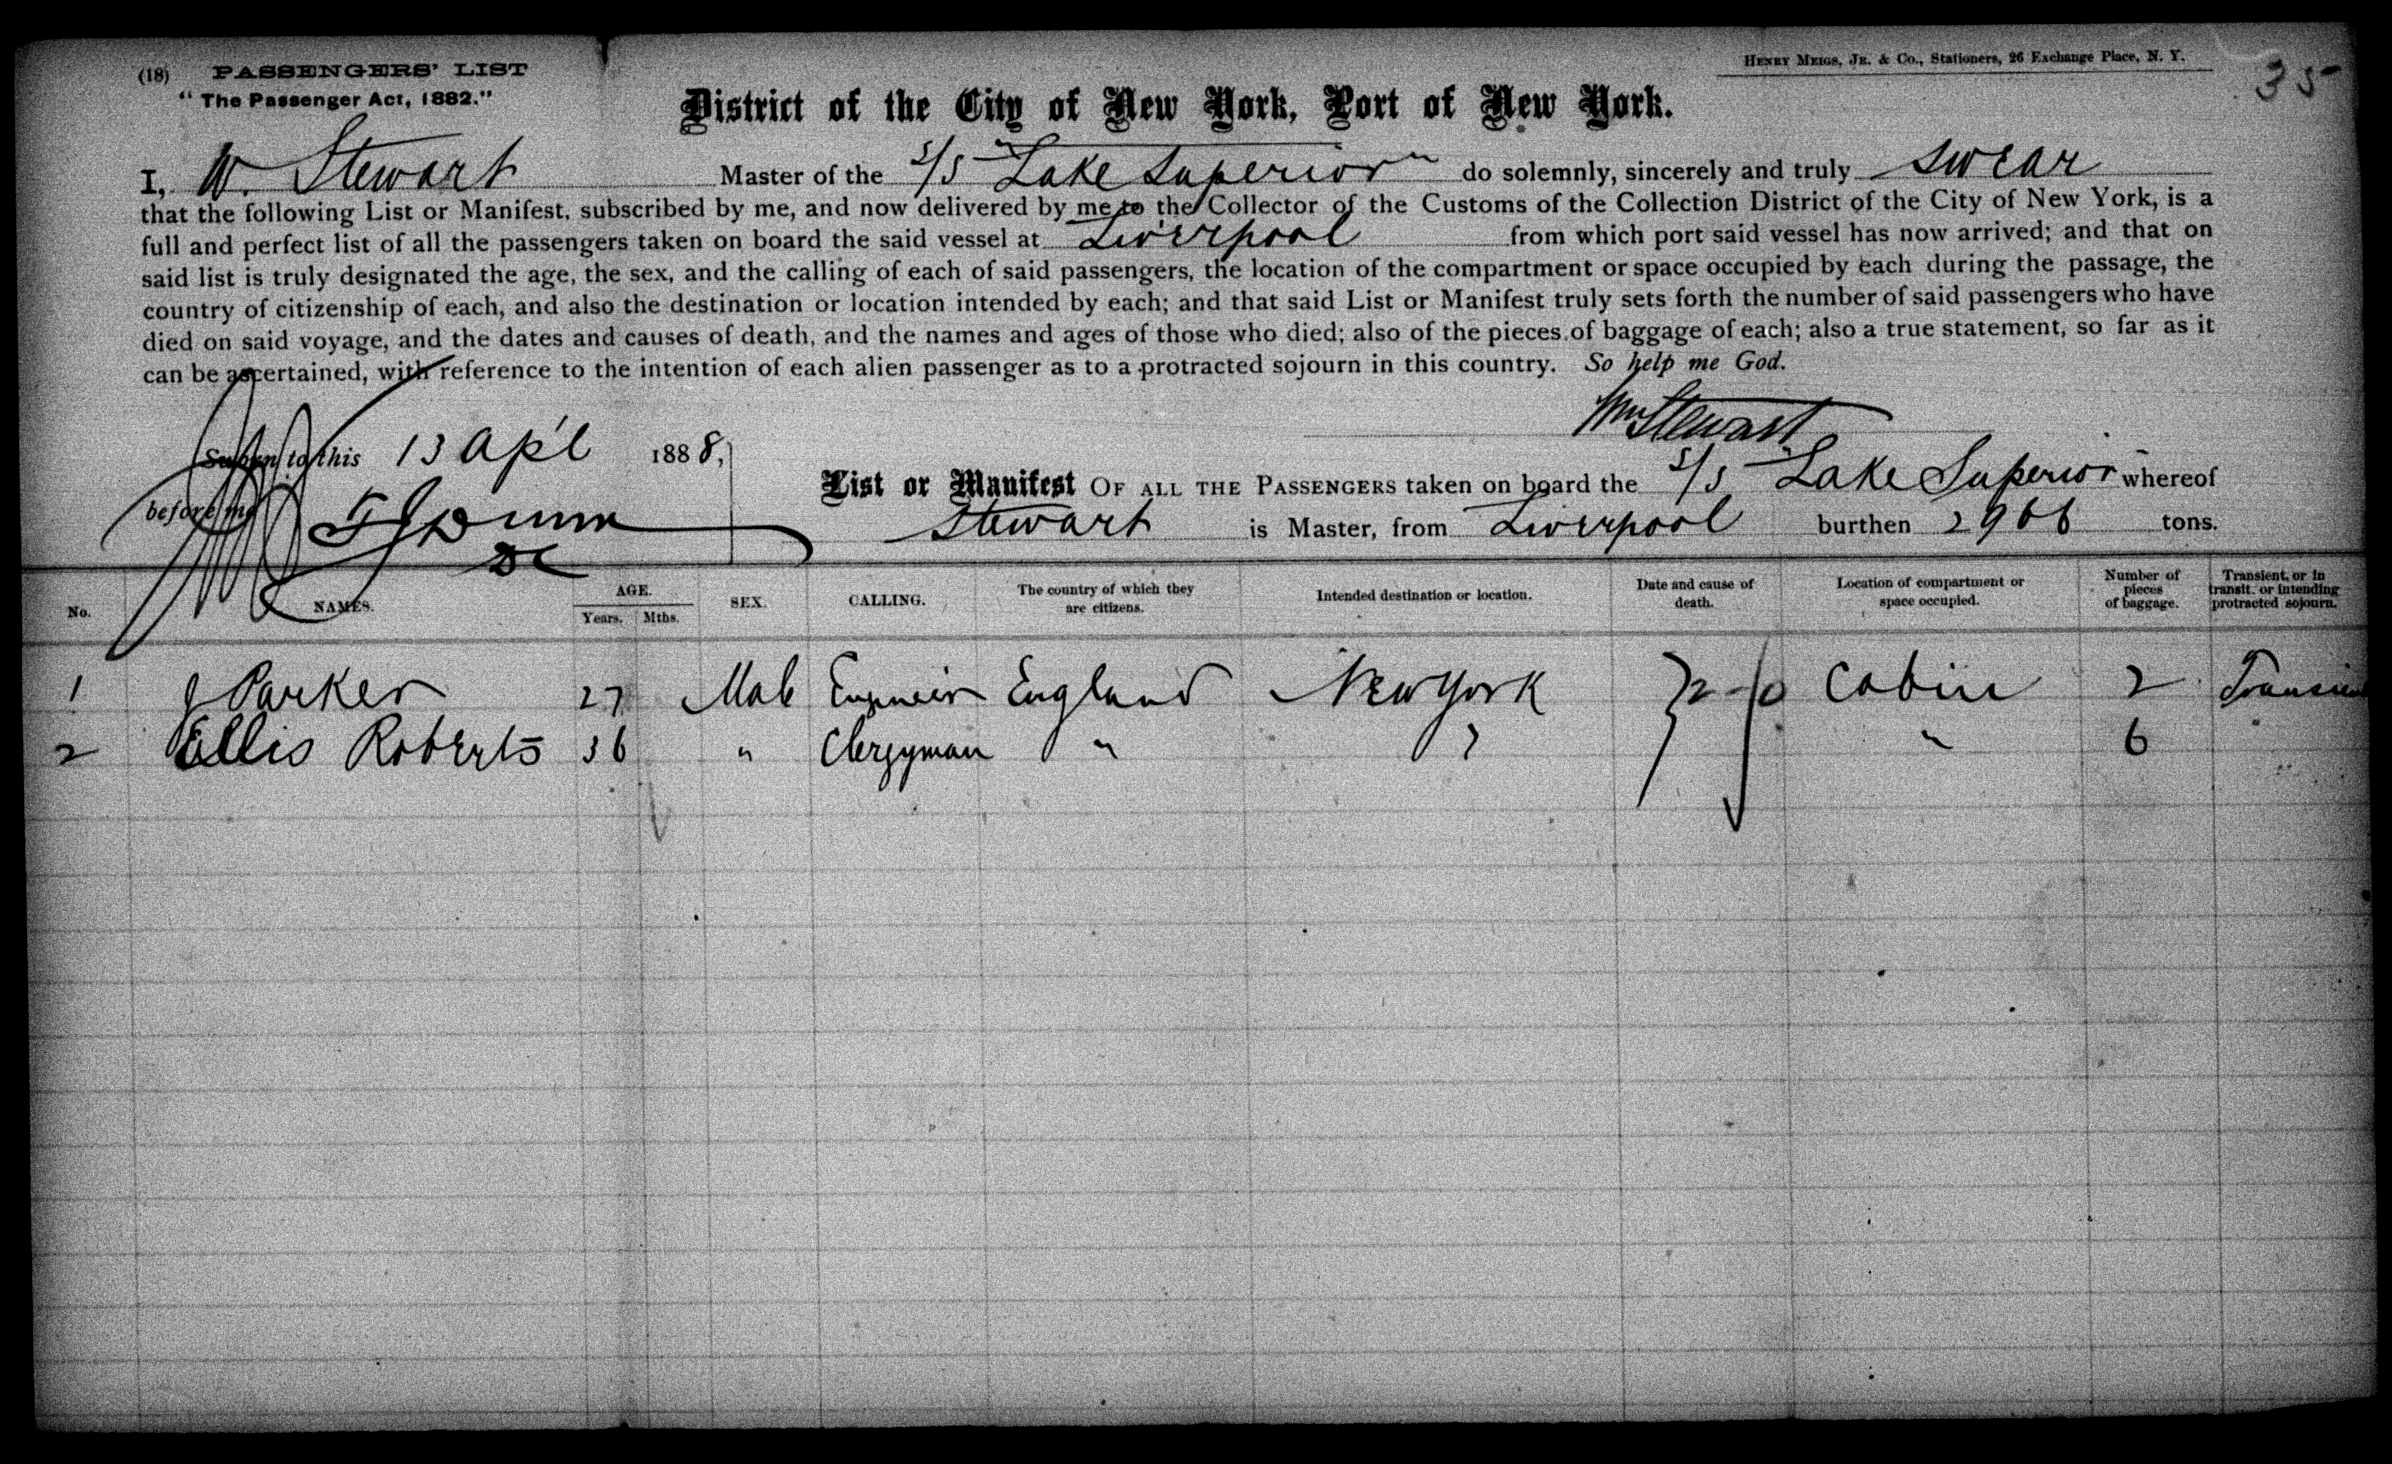 (18) PASSENGERS' LIST
"The Passenger Act, 1882."
HENRY MEIGS, JR. & Co., Stationers, 26 Exchange Place, N. Y.
35
District of the City of New York, Port of New York.
I, W. Stewart Master of the s/s "Lake Superior" do solemnly, sincerely and truly swear
that the following List or Manifest, subscribed by me, and now delivered by me to the Collector of the Customs of the Collection District of the City of New York, is a
full and perfect list of all the passengers taken on board the said vessel at Liverpool from which port said vessel has now arrived; and that on
said list is truly designated the age, the sex, and the calling of each of said passengers, the location of the compartment or space occupied by each during the passage, the
country of citizenship of each, and also the destination or location intended by each; and that said List or Manifest truly sets forth the number of said passengers who have
died on said voyage, and the dates and causes of death, and the names and ages of those who died; also of the pieces of baggage of each; also a true statement, so far as it
can be ascertained, with reference to the intention of each alien passenger as to a protracted sojourn in this country. So help me God.
Wm Stewart
Sworn to this 13 Apl 1888,
before me
List or Manifest OF ALL THE PASSENGERS taken on board the s/s Lake Superior whereof
Stewart is Master, from Liverpool burthen 2966 tons.
No. NAMES. AGE. Years. Mths. SEX. CALLING. The country of which they are citizens. Intended destination or location. Date and cause of death. Location of compartment or space occupied. Number of pieces of baggage. Transient, or in transit, or intending protracted sojourn.
1 J Parker 27 Male Engineer England New York Cabin 2 Transient
2 Ellis Roberts 36 " Clergyman " " " 6